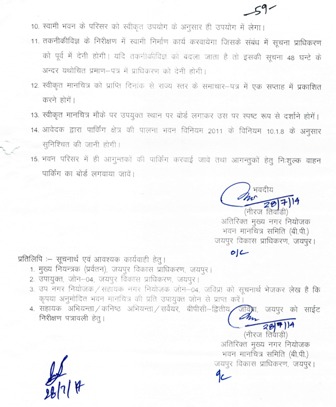 -59-
10. स्वामी भवन के परिसर को स्वीकृत उपयोग के अनुसार ही उपयोग में लेगा।
11. तकनीकीविद के निरीक्षण में स्वामी निर्माण कार्य करवायेगा जिसके संबंध में सूचना प्राधिकरण
को पूर्व में देनी होगी। यदि तकनीकीविद को बदला जाता है तो इसकी सूचना 48 घन्टे के
अन्दर यथोचित प्रमाण-पत्र में प्राधिकरण को देनी होगी।
12. स्वीकृत मानचित्र को प्राप्ति दिनांक से राज्य स्तर के समाचार-पत्र में एक सप्ताह में प्रकाशित
करने होगें।
13. स्वीकृत मानचित्र मौके पर उपयुक्त स्थान पर बोर्ड लगाकर उस पर स्पष्ट रूप से दर्शाने होगें।
14. आवेदक द्वारा पार्किंग क्षेत्र की पालना भवन विनियम 2011 के विनियम 10.1.8 के अनुसार
सुनिश्चित की जानी होगी।
15. भवन परिसर में ही आगुन्तकों की पार्किंग करवाई जावे तथा आगन्तुकों हेतु निःशुल्क वाहन
पार्किंग का बोर्ड लगवाया जावे।
भवदीय
28/7/17
(नीरज तिवाड़ी)
अतिरिक्त मुख्य नगर नियोजक
भवन मानचित्र समिति (बी.पी.)
जयपुर विकास प्राधिकरण, जयपुर।
o/c
प्रतिलिपि :- सूचनार्थ एवं आवश्यक कार्यवाही हेतु।
1. मुख्य नियन्त्रक (प्रर्वतन), जयपुर विकास प्राधिकरण, जयपुर।
2. उपायुक्त, जोन-04, जयपुर विकास प्राधिकरण, जयपुर।
3. उप नगर नियोजक/सहायक नगर नियोजक जोन-04, जविप्रा को सूचनार्थ भेजकर लेख है कि
कृपया अनुमोदित भवन मानचित्र की प्रति उपायुक्त जोन से प्राप्त करें।
4. सहायक अभियन्ता/कनिष्ठ अभियन्ता/सर्वेयर, बीपीसी-द्वितीय, जविप्रा, जयपुर को साईट
निरीक्षण पत्रावली हेतु।
28/7/17
(नीरज तिवाड़ी)
अतिरिक्त मुख्य नगर नियोजक
भवन मानचित्र समिति (बी.पी.)
जयपुर विकास प्राधिकरण, जयपुर।
28/7/17